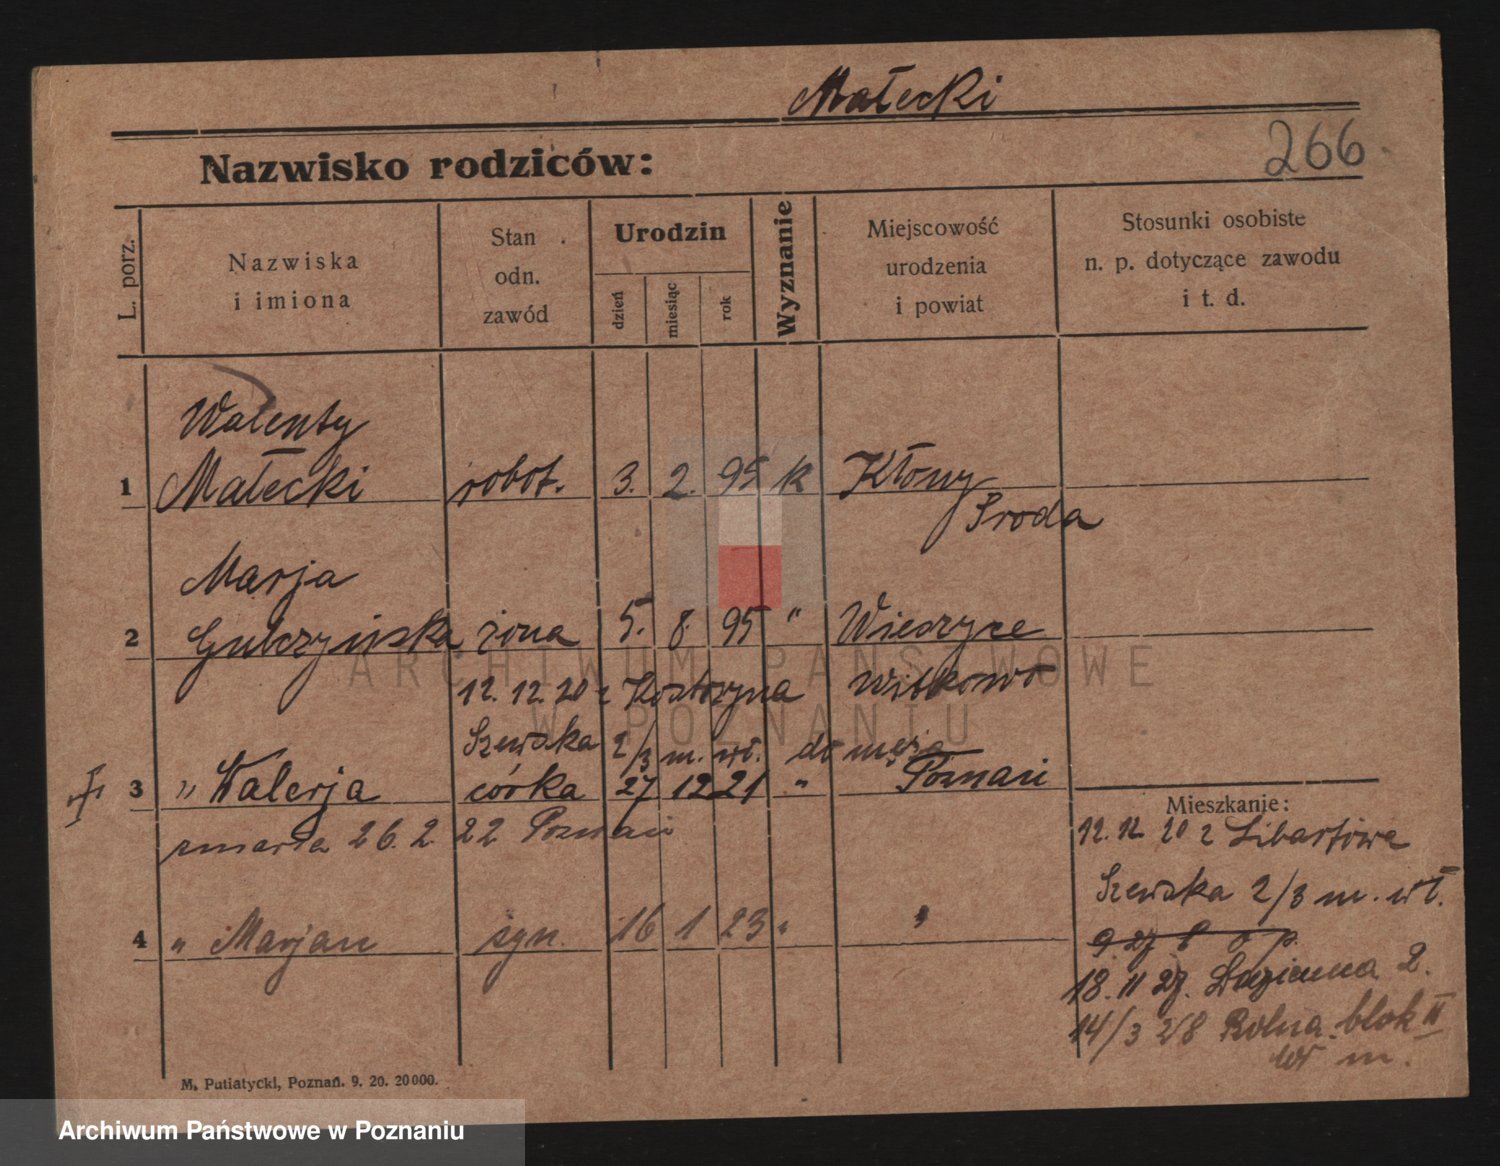 Małecki
266
Nazwisko rodziców:
L. porz.
Nazwiska
i imiona
Stan
odn.
zawód
Urodzin
dzień
miesiąc
rok
Wyznanie
Miejscowość
urodzenia
i powiat
Stosunki osobiste
n. p. dotyczące zawodu
i t. d.
Walenty
1 Małecki robot. 3. 2. 95 k Kłony
Środa
Marja
2 Gulczyńska żona 5. 8. 95 " Wierzyce
12. 12. 20 z Kostrzyna Witkowo
Szewska 2/3 m. wł. do męża
3 " Walerja córka 27 12 21 " Poznań
zmarła 26. 2. 22 Poznań
4 " Marjan syn. 16 1 23 " "
Mieszkanie:
12. 12 20 z Libartowa
Szewska 2/3 m. wł.
18. 11 27. 2.
14/3 28 Rolna blok II
wł m.
M. Putiatycki, Poznań. 9. 20. 20000.
ARCHIWUM PAŃSTWOWE
W POZNANIU
Archiwum Państwowe w Poznaniu